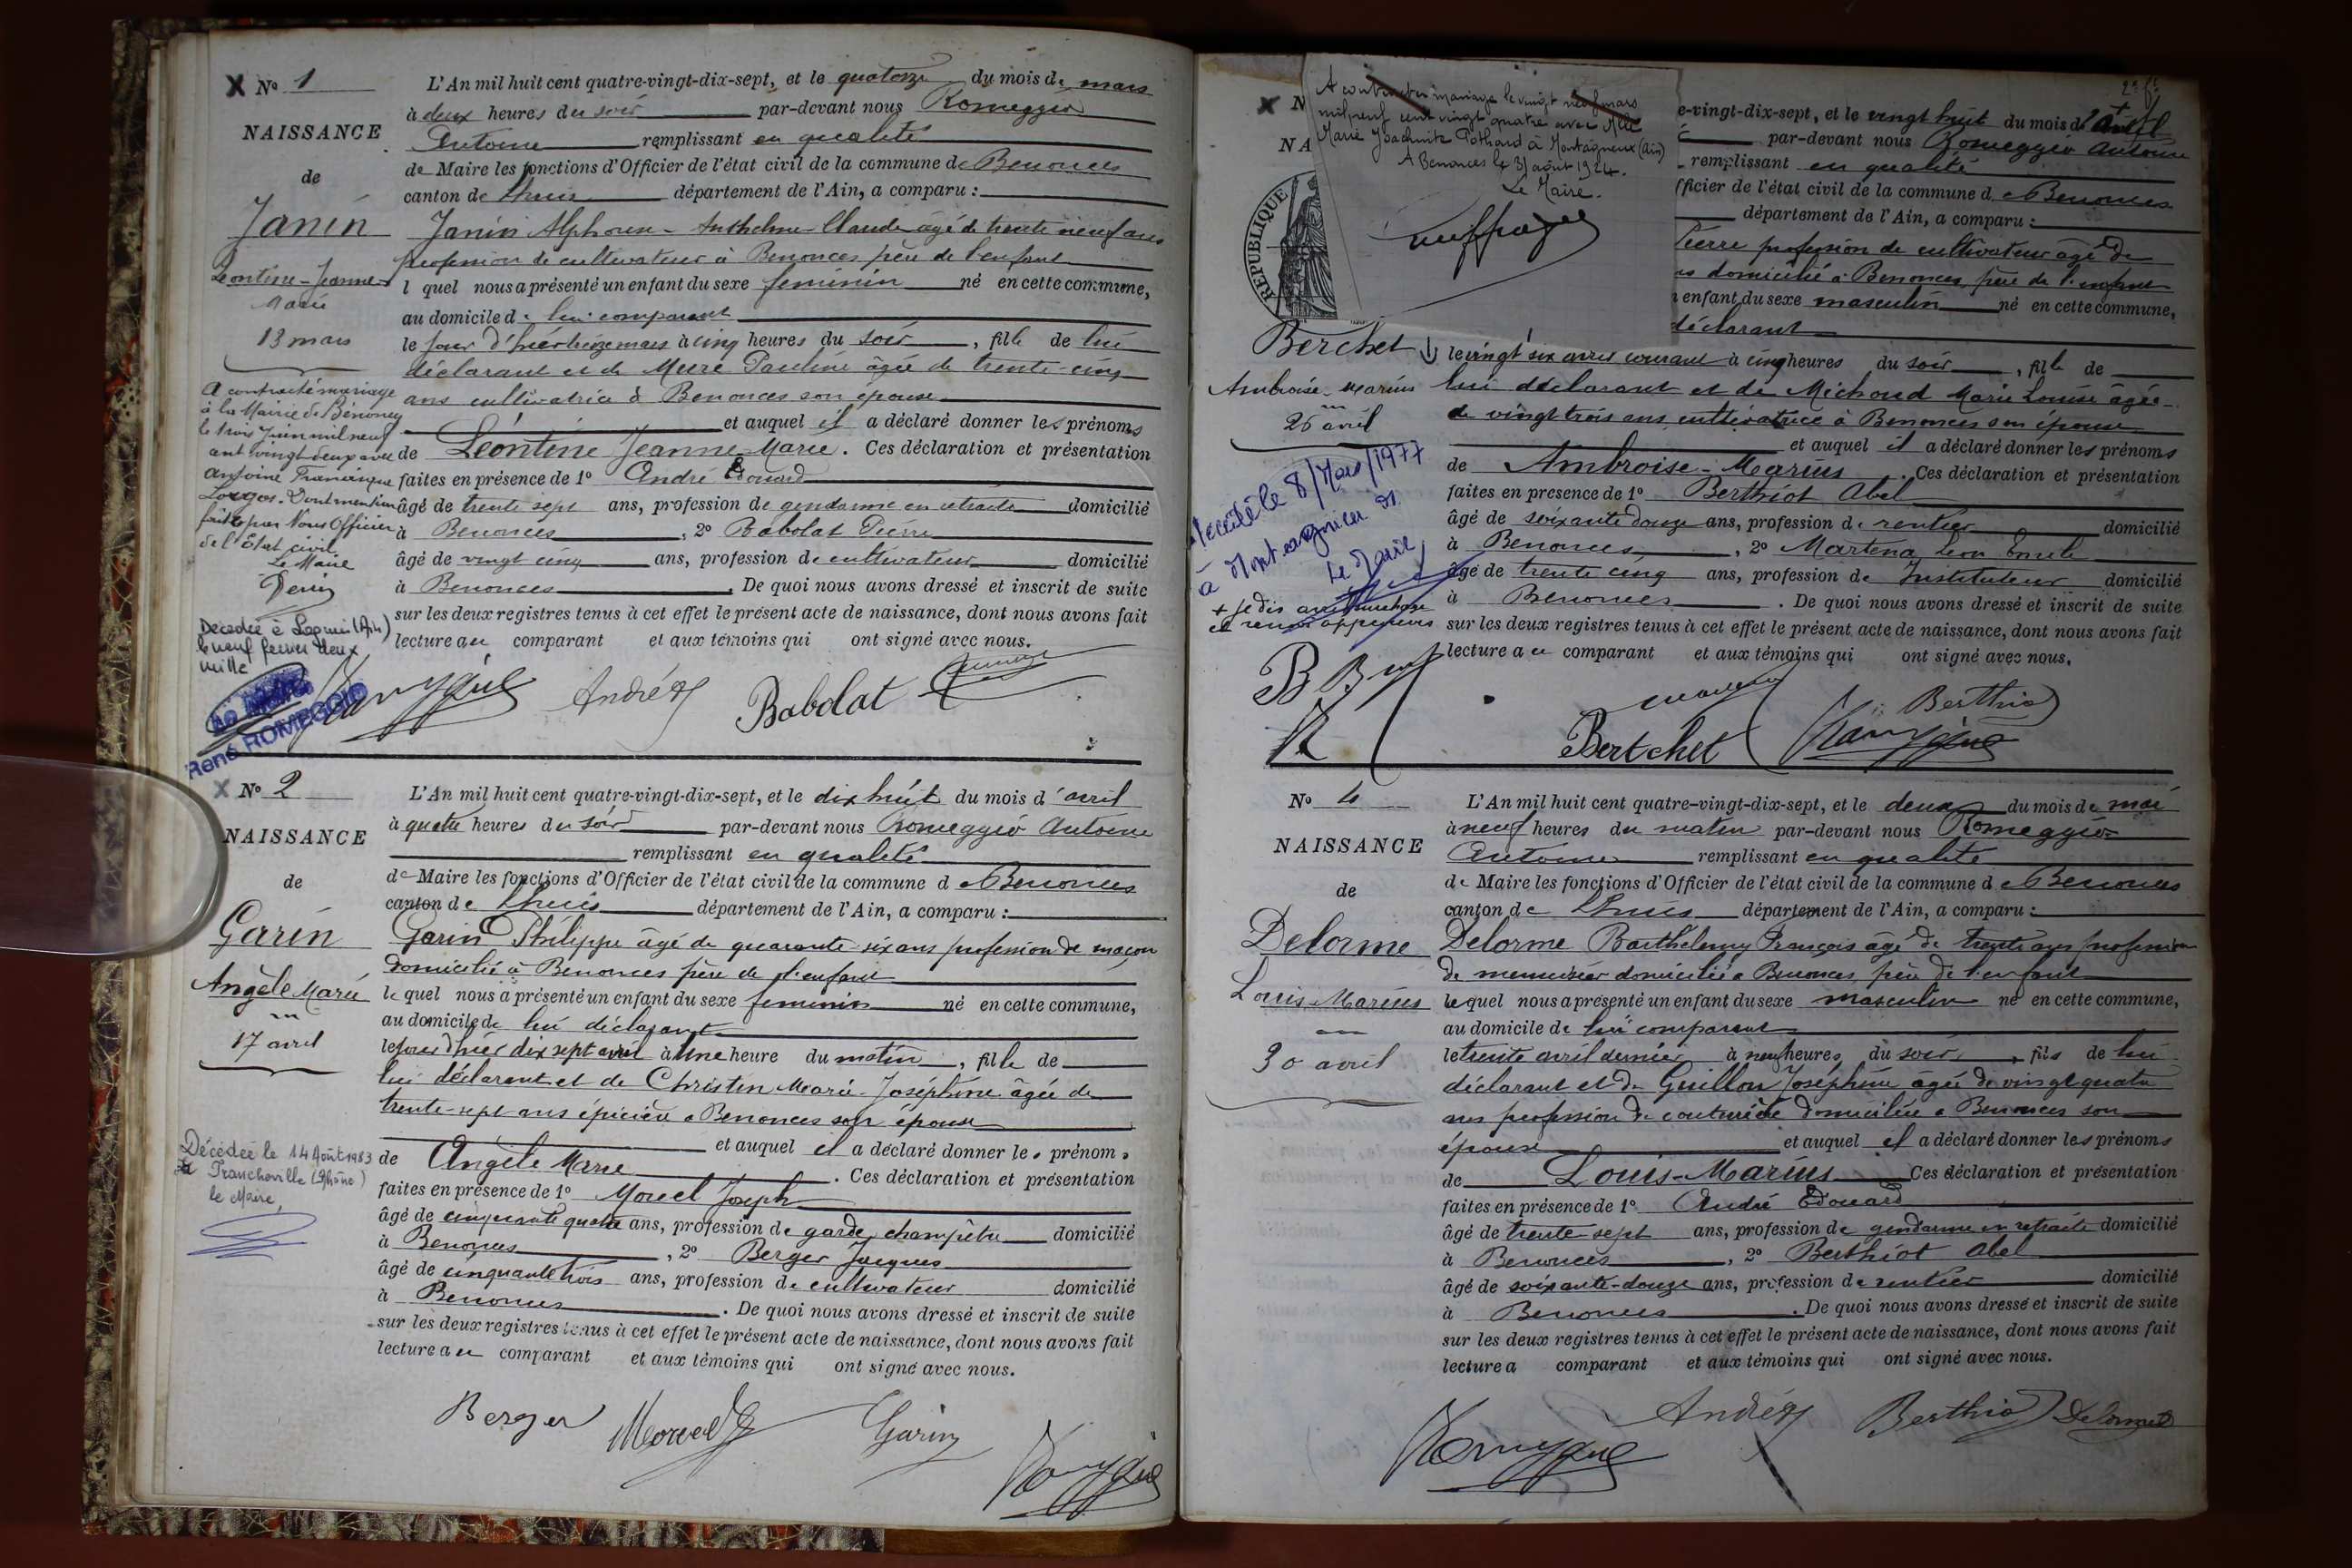 X No 1
NAISSANCE
de
Janin
Léontine-Jeanne
Marie
13 mars
A contracté mariage
à la Mairie de Bénonces
le trois Juin mil neuf
cent vingt deux avec
Antoine Francisque
Dont mention
faite par Nous Officier
de l'État civil
Le Maire
Décédée à Lagnieu (Ain)
le neuf février deux
mille
Le Maire
René ROMEGGIO
L'An mil huit cent quatre-vingt-dix-sept, et le quatorze du mois de mars
à deux heures du soir par-devant nous Romeggio
Antoine remplissant en qualité
de Maire les fonctions d'Officier de l'état civil de la commune de Benonces
canton de Lhuis département de l'Ain, a comparu :
Janin Alphonse-Anthelme-Claude âgé de trente neuf ans
profession de cultivateur à Benonces père de l'enfant
l quel nous a présenté un enfant du sexe feminin né en cette commune,
au domicile de lui comparant
le jour d'hier treize mars à cinq heures du soir, fille de lui
déclarant et de Pauline âgée de trente-cinq
ans cultivatrice à Benonces son épouse
et auquel il a déclaré donner les prénoms
de Léontine Jeanne-Marie. Ces déclaration et présentation
faites en présence de 1o André Edouard
âgé de trente sept ans, profession de gendarme en retraite domicilié
à Benonces, 2o Babolat Pierre
âgé de vingt cinq ans, profession de cultivateur domicilié
à Benonces. De quoi nous avons dressé et inscrit de suite
sur les deux registres tenus à cet effet le présent acte de naissance, dont nous avons fait
lecture au comparant et aux témoins qui ont signé avec nous.
André Babolat
X No 2
NAISSANCE
de
Garin
Angèle Marie
17 avril
Décédée le 14 Août 1983
à Francheville (Rhône)
le Maire,
L'An mil huit cent quatre-vingt-dix-sept, et le dix huit du mois d'avril
à quatre heures du soir par-devant nous Romeggio Antoine
remplissant en qualité
de Maire les fonctions d'Officier de l'état civil de la commune de Benonces
canton de Lhuis département de l'Ain, a comparu :
Garin Philippe âgé de quarante-six ans profession de maçon
domicilié à Benonces père de l'enfant
lequel nous a présenté un enfant du sexe feminin né en cette commune,
au domicile de lui déclarant
le jour d'hier dix sept avril à une heure du matin, fille de
lui déclarant et de Christin Marie-Joséphine âgée de
trente-sept ans épicière à Benonces son épouse
et auquel il a déclaré donner les prénoms
de Angèle Marie. Ces déclaration et présentation
faites en présence de 1o Morel Joseph
âgé de cinquante quatre ans, profession de garde champêtre domicilié
à Benonces, 2o Berger Jacques
âgé de cinquante trois ans, profession de cultivateur domicilié
à Benonces. De quoi nous avons dressé et inscrit de suite
sur les deux registres tenus à cet effet le présent acte de naissance, dont nous avons fait
lecture au comparant et aux témoins qui ont signé avec nous.
Berger Morel Garin
X N
NA
REPUBLIQUE
A contracté mariage le vingt neuf mars
mil neuf cent vingt quatre avec Melle
Marie Pothard à Montagnieu (Ain)
A Benonces le 31 août 1924.
Le Maire.
Berchet
Ambroise-Marius
26 avril
Décédé le 8/Mars/1977
à Montagnieu 01
Le Maire
e-vingt-dix-sept, et le vingt huit du mois d'avril
par-devant nous Romeggio Antoine
remplissant en qualité
fficier de l'état civil de la commune de Benonces
département de l'Ain, a comparu :
Pierre profession de cultivateur âgé de
ns domicilié à Benonces, père de l'enfant
enfant du sexe masculin né en cette commune,
déclarant
le vingt six avril courant à cinq heures du soir, fils de
lui déclarant et de Michoud Marie Louise âgée
de vingt trois ans cultivatrice à Benonces son épouse
et auquel il a déclaré donner les prénoms
de Ambroise-Marius. Ces déclaration et présentation
faites en présence de 1o Berthiot Abel
âgé de soixante douze ans, profession de rentier domicilié
à Benonces, 2o Martena Léon Emile
âgé de trente cinq ans, profession de Instituteur domicilié
à Benonces. De quoi nous avons dressé et inscrit de suite
sur les deux registres tenus à cet effet le présent acte de naissance, dont nous avons fait
lecture au comparant et aux témoins qui ont signé avec nous.
Bertchet Berthiot
No 4
NAISSANCE
de
Delorme
Louis-Marius
30 avril
L'An mil huit cent quatre-vingt-dix-sept, et le deux du mois de mai
à neuf heures du matin par-devant nous Romeggio
Antoine remplissant en qualité
de Maire les fonctions d'Officier de l'état civil de la commune de Benonces
canton de Lhuis département de l'Ain, a comparu :
Delorme Barthelemy François âgé de trente ans profession
de menuisier domicilié à Benonces, père de l'enfant
lequel nous a présenté un enfant du sexe masculin né en cette commune,
au domicile de lui comparant
le trente avril dernier à neuf heures du soir, fils de lui
déclarant et de Guillon Joséphine âgée de vingt quatre
ans profession de couturière domiciliée à Benonces son
épouse et auquel il a déclaré donner les prénoms
de Louis-Marius Ces déclaration et présentation
faites en présence de 1o André Edouard
âgé de trente sept ans, profession de gendarme en retraite domicilié
à Benonces, 2o Berthiot Abel
âgé de soixante-douze ans, profession de rentier domicilié
à Benonces. De quoi nous avons dressé et inscrit de suite
sur les deux registres tenus à cet effet le présent acte de naissance, dont nous avons fait
lecture a comparant et aux témoins qui ont signé avec nous.
André Berthiot Delorme